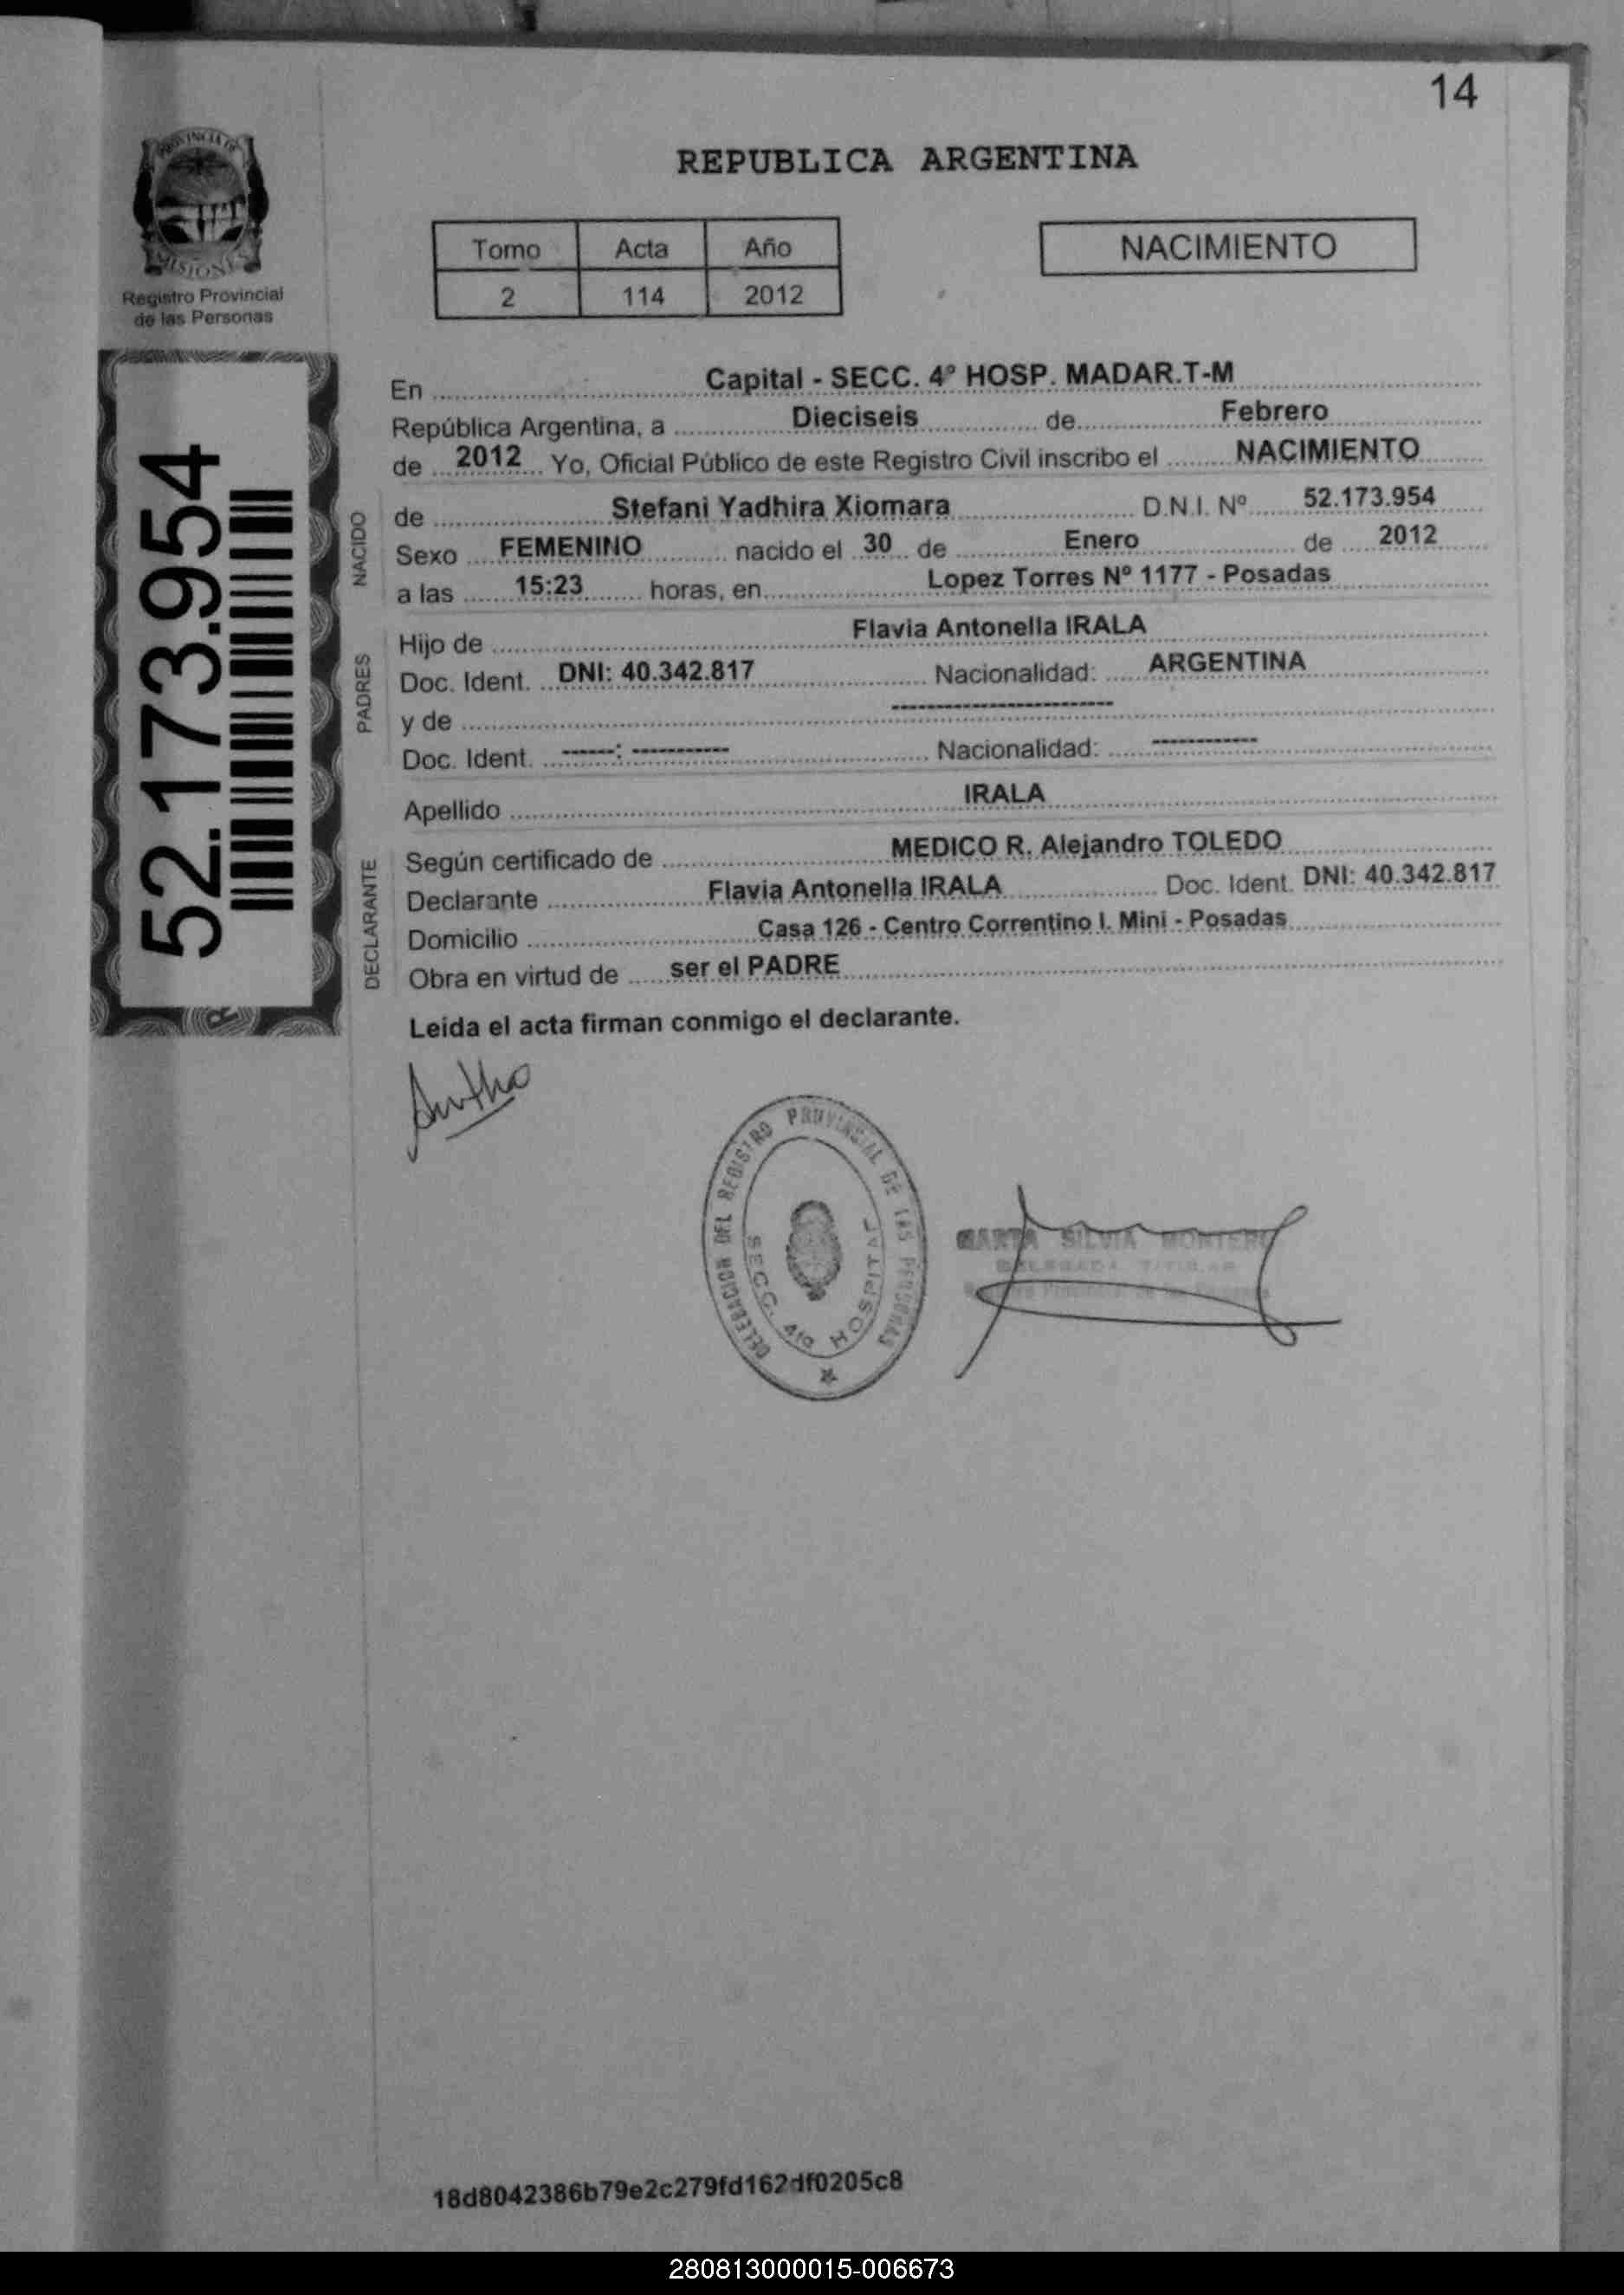 14
PROVINCIA DE
MISIONES
Registro Provincial
de las Personas
REPUBLICA ARGENTINA
Tomo Acta Año
2 114 2012
NACIMIENTO
52.173.954
En Capital - SECC. 4º HOSP. MADAR.T-M
República Argentina, a Dieciseis de Febrero
de 2012 Yo, Oficial Público de este Registro Civil inscribo el NACIMIENTO
NACIDO
de Stefani Yadhira Xiomara D.N.I. Nº 52.173.954
Sexo FEMENINO nacido el 30 de Enero de 2012
a las 15:23 horas, en Lopez Torres Nº 1177 - Posadas
PADRES
Hijo de Flavia Antonella IRALA
Doc. Ident. DNI: 40.342.817 Nacionalidad: ARGENTINA
y de ------------------------
Doc. Ident. ------: ----------- Nacionalidad: ------------
Apellido IRALA
DECLARANTE
Según certificado de MEDICO R. Alejandro TOLEDO
Declarante Flavia Antonella IRALA Doc. Ident. DNI: 40.342.817
Domicilio Casa 126 - Centro Correntino I. Mini - Posadas
Obra en virtud de ser el PADRE
Leida el acta firman conmigo el declarante.
DELEGACION DEL REGISTRO PROVINCIAL DE LAS PERSONAS
SECC. 4ta HOSPITAL
MARTA SILVIA MONTERO
DELEGADA TITULAR
18d8042386b79e2c279fd162df0205c8
280813000015-006673